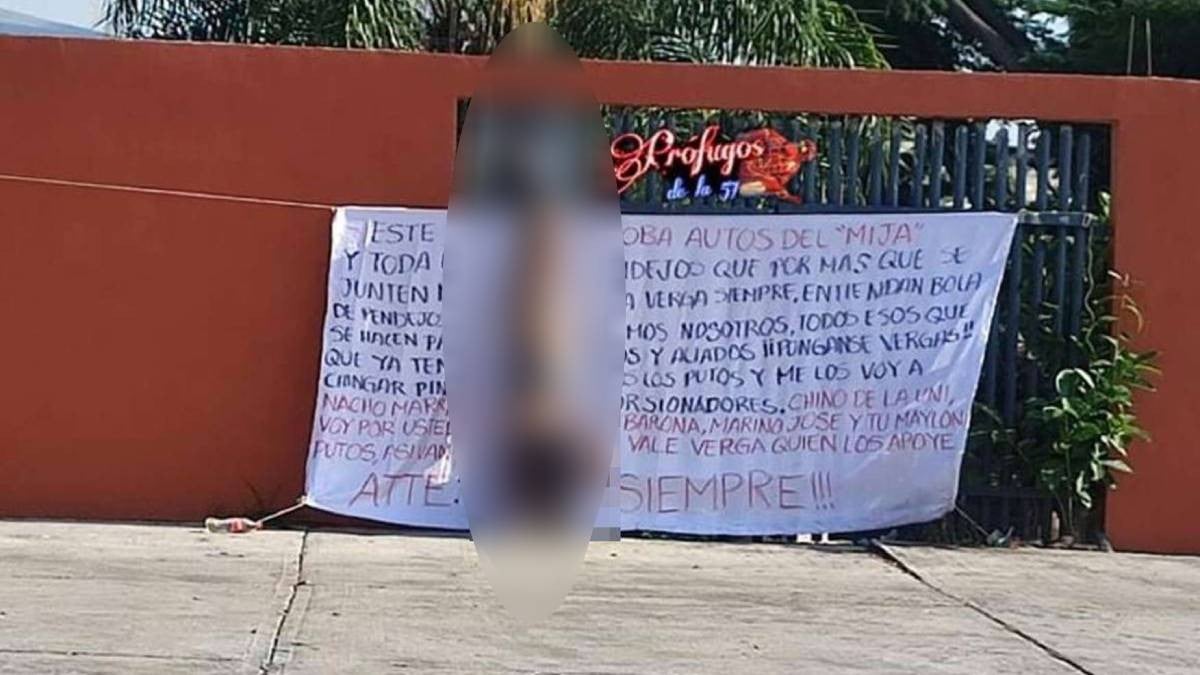 Prófugos
de la 57
ESTE OBA AUTOS DEL "MIJA"
Y TODA DEJOS QUE POR MAS QUE SE
JUNTEN A VERGA SIEMPRE, ENTIENDAN BOLA
DE PENDEJOS MOS NOSOTROS, TODOS ESOS QUE
SE HACEN PA OS Y ALIADOS ¡¡PONGANSE VERGAS!!
QUE YA TEN S LOS PUTOS Y ME LOS VOY A
CHINGAR PIN ORSIONADORES. CHINO DE LA UNI,
NACHO MARR BARONA, MARINO, JOSE Y TU MAYLON
VOY POR USTED VALE VERGA QUIEN LOS APOYE
PUTOS, ASI VAN
ATTE: SIEMPRE!!!